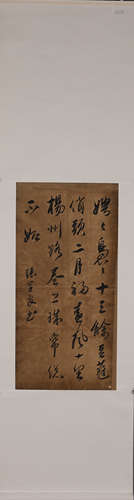 娉〻裊〻十三餘豆蔻
梢頭二月初春風十里
楊州路卷上珠簾總
不如